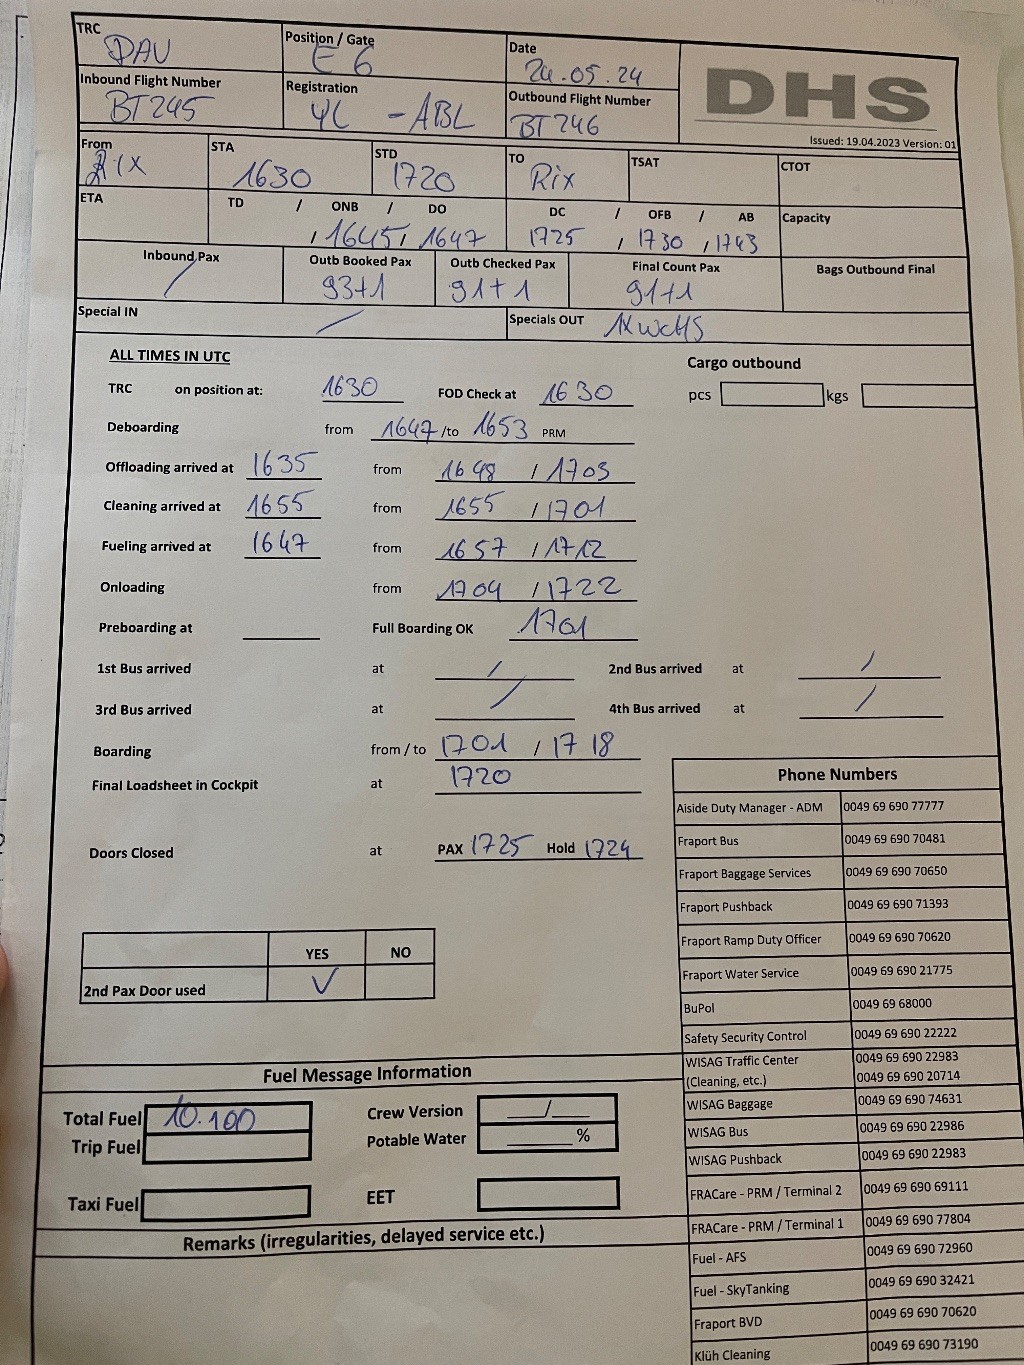 TRC DAV Position / Gate E6 Date 24.05.24 DHS
Inbound Flight Number BT245 Registration YL - ABL Outbound Flight Number BT246
Issued: 19.04.2023 Version: 01
From RIX STA 1630 STD 1720 TO Rix TSAT CTOT
ETA TD / ONB / DO DC / OFB / AB Capacity
/ 1645 / 1647 1725 / 1730 / 1743
Inbound Pax Outb Booked Pax Outb Checked Pax Final Count Pax Bags Outbound Final
/ 93+1 91+1 91+1
Special IN / Specials OUT 1x WCHS
ALL TIMES IN UTC Cargo outbound
TRC on position at: 1630 FOD Check at 1630 pcs kgs
Deboarding from 1647 /to 1653 PRM
Offloading arrived at 1635 from 1648 / 1703
Cleaning arrived at 1655 from 1655 / 1701
Fueling arrived at 1647 from 1657 / 1712
Onloading from 1704 / 1722
Preboarding at Full Boarding OK 1701
1st Bus arrived at / 2nd Bus arrived at /
3rd Bus arrived at / 4th Bus arrived at /
Boarding from / to 1701 / 1718
Final Loadsheet in Cockpit at 1720
Doors Closed at PAX 1725 Hold 1724
YES NO
2nd Pax Door used V
Fuel Message Information
Total Fuel 10.100 Crew Version /
Trip Fuel Potable Water %
Taxi Fuel EET
Remarks (irregularities, delayed service etc.)
Phone Numbers
Aiside Duty Manager - ADM 0049 69 690 77777
Fraport Bus 0049 69 690 70481
Fraport Baggage Services 0049 69 690 70650
Fraport Pushback 0049 69 690 71393
Fraport Ramp Duty Officer 0049 69 690 70620
Fraport Water Service 0049 69 690 21775
BuPol 0049 69 68000
Safety Security Control 0049 69 690 22222
WISAG Traffic Center 0049 69 690 22983
(Cleaning, etc.) 0049 69 690 20714
WISAG Baggage 0049 69 690 74631
WISAG Bus 0049 69 690 22986
WISAG Pushback 0049 69 690 22983
FRACare - PRM / Terminal 2 0049 69 690 69111
FRACare - PRM / Terminal 1 0049 69 690 77804
Fuel - AFS 0049 69 690 72960
Fuel - SkyTanking 0049 69 690 32421
Fraport BVD 0049 69 690 70620
Klüh Cleaning 0049 69 690 73190